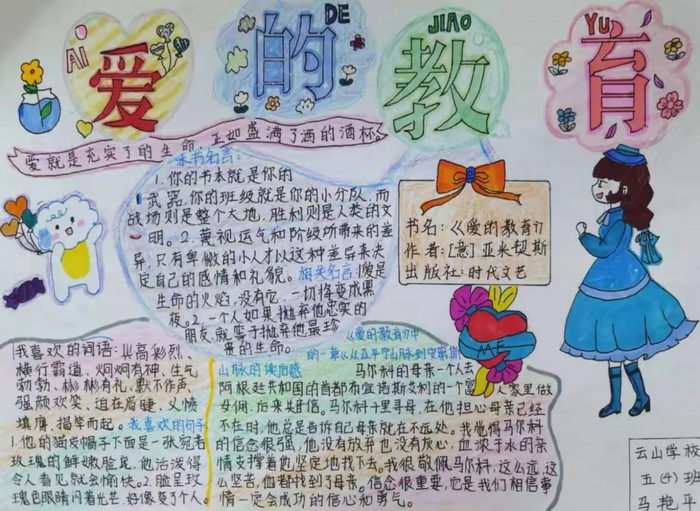 AI 爱
DE 的
JIAO 教
YU 育
爱就是充实了的生命,正如盛满了酒的酒杯。
本书名言:
1.你的书本就是你的
武器,你的班级就是你的小分队,而
战场则是整个大地,胜利则是人类的文
明。2.蔑视运气和阶级所带来的差
异,只有卑微的小人才以这种差异来决
定自己的感情和礼貌。相关名言1爱是
生命的火焰,没有它,一切将变成黑
夜。2.一个人如果抛弃他忠实的
朋友,就等于抛弃他最珍
贵的生命。
书名:《爱的教育》
作者:[意]亚米契斯
出版社:时代文艺
ME
我喜欢的词语:兴高彩烈、
横行霸道、炯炯有神、生气
勃勃、彬彬有礼、默不作声、
强颜欢笑、迫在眉睫、义愤
填膺、揭竿而起。我喜欢的句子
1.他的猫皮帽子下面是一张宛若
玫瑰的鲜嫩脸蛋,他活泼得
令人看见就会愉快。2.脸呈玫
瑰色眼睛闪着光芒,好像变了个人。
《爱的教育》中
的一章《从亚平宁山脉到安第斯
山脉的读后感
马尔科的母亲一个人去
阿根廷共和国的首都布宜诺斯艾利的一个富人家里做
女佣,后来失联信。马尔科千里寻母,在他担心母亲已经
不在时,他总是告诉自己母亲就在不远处。我觉得马尔科
的信念很强,他没有放弃也没有灰心,血浓于水的亲
情支撑着他坚定地找下去。我很敬佩马尔科,这么远,这
么坚苦,他都找到了母亲。信念很重要,它是我们相信事
情一定会成功的信心和勇气。
云山学校
五(4)班
马艳平